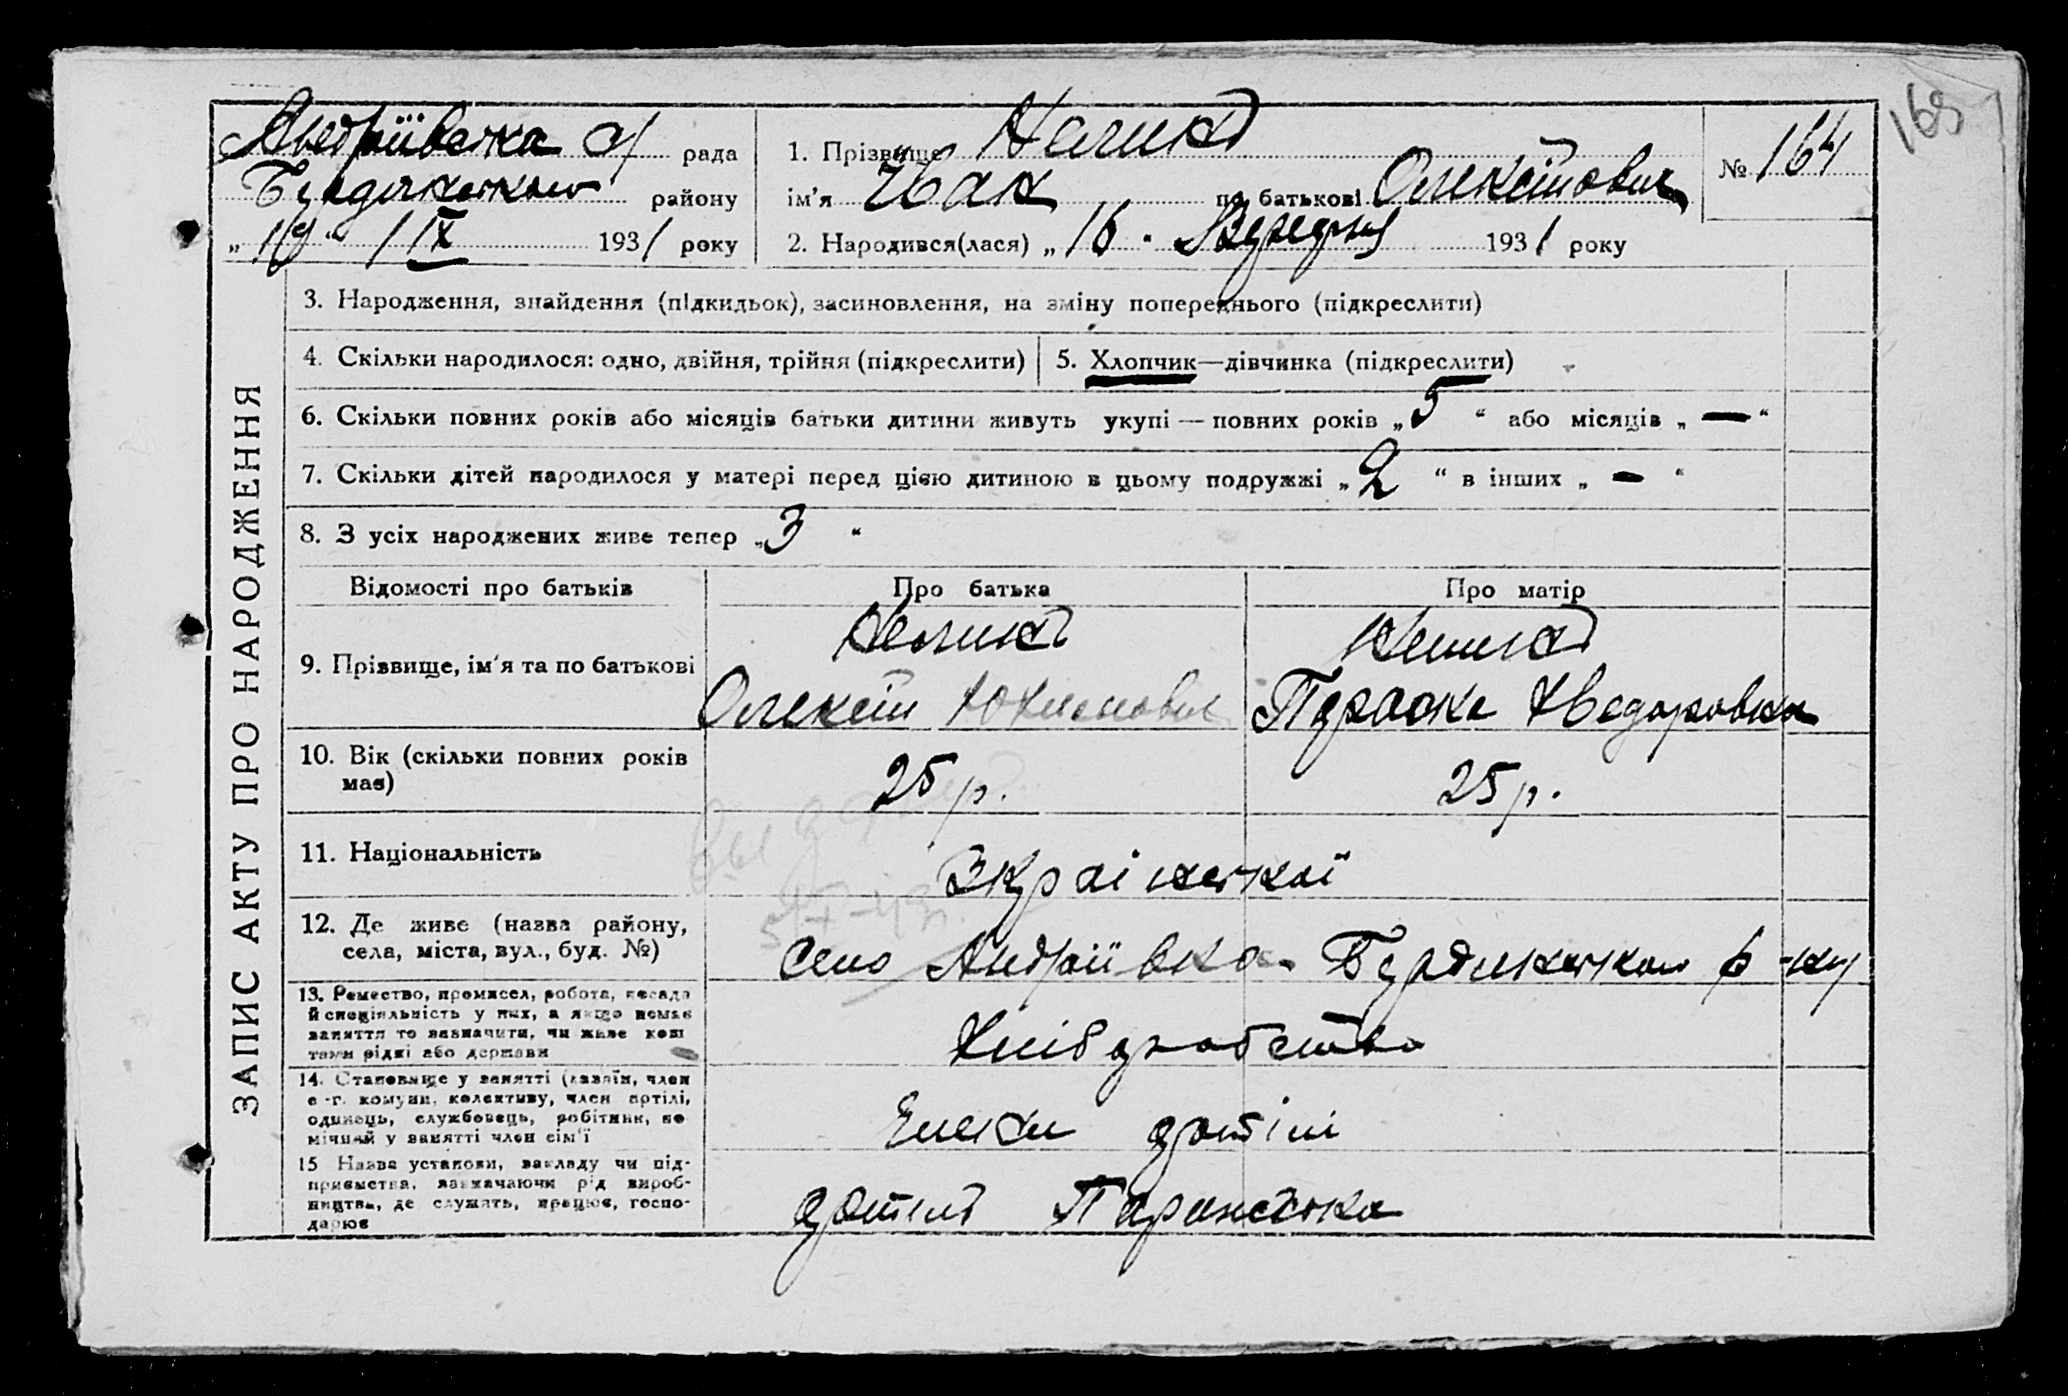 Андріївська с/ рада
Бердянського району
„19“ / IX 1931 року
1. Прізвище
ім'я Іван по батькові Олексійович
2. Народився(лася) „16. Вересня 1931 року
№ 164
165
ЗАПИС АКТУ ПРО НАРОДЖЕННЯ
3. Народження, знайдення (підкидьок), засиновлення, на зміну попереднього (підкреслити)
4. Скільки народилося: одно, двійня, трійня (підкреслити)
5. Хлопчик—дівчинка (підкреслити)
6. Скільки повних років або місяців батьки дитини живуть укупі — повних років „5“ або місяців „—“
7. Скільки дітей народилося у матері перед цією дитиною в цьому подружжі „2“ в інших „-“
8. З усіх народжених живе тепер „3“
Відомості про батьків
Про батька
Про матір
9. Прізвище, ім'я та по батькові
Олексій
Параска Хведоровна
10. Вік (скільки повних років має)
25 р.
25 р.
11. Національність
Вкраїнської
12. Де живе (назва району,
села, міста, вул., буд. №)
село Андріївка Бердянського р-ну
13. Ремество, промисел, робота, посада
й спеціяльність у них, а якщо немає
заняття то зазначити, чи живе кош
тами рідні або держави
Хліборобство
14. Становище у занятті (хазяїн, член
с.-г. комуни, колективу, член артілі,
одинець, службовець, робітник, по
мічний у занятті член сім'ї
Члени артілі
15 Назва установи, закладу чи під-
приємства, зазначаючи рід вироб-
ництва, де служить, працює, госпо-
дарює
артіль